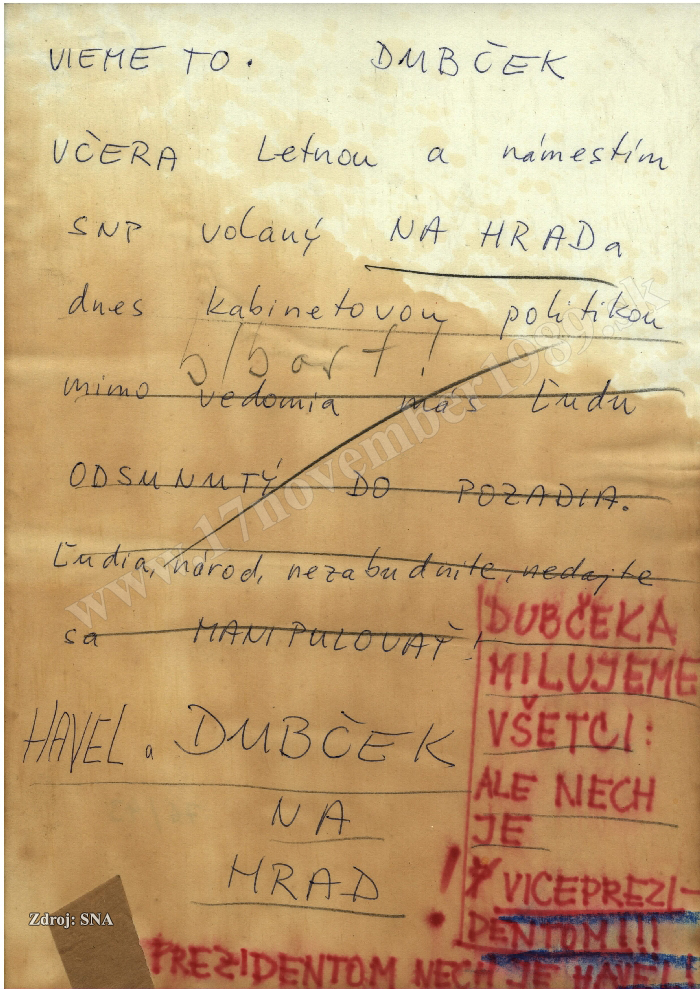 VIEME TO. DUBČEK
VČERA Letnou a námestím
SNP volaný NA HRAD a
dnes kabinetovou politikou
blbosť!
mimo vedomia más Ľudu
ODSUNUTÝ DO POZADIA.
Ľudia, národ, nezabudnite, nedajte
sa MANIPULOVAŤ!
HAVEL a DUBČEK
NA
HRAD
!
DUBČEKA
MILUJEME
VŠETCI:
ALE NECH
JE
VICEPREZI-
DENTOM!!!
PREZIDENTOM NECH JE HAVEL!
www.17november1989.sk
Zdroj: SNA